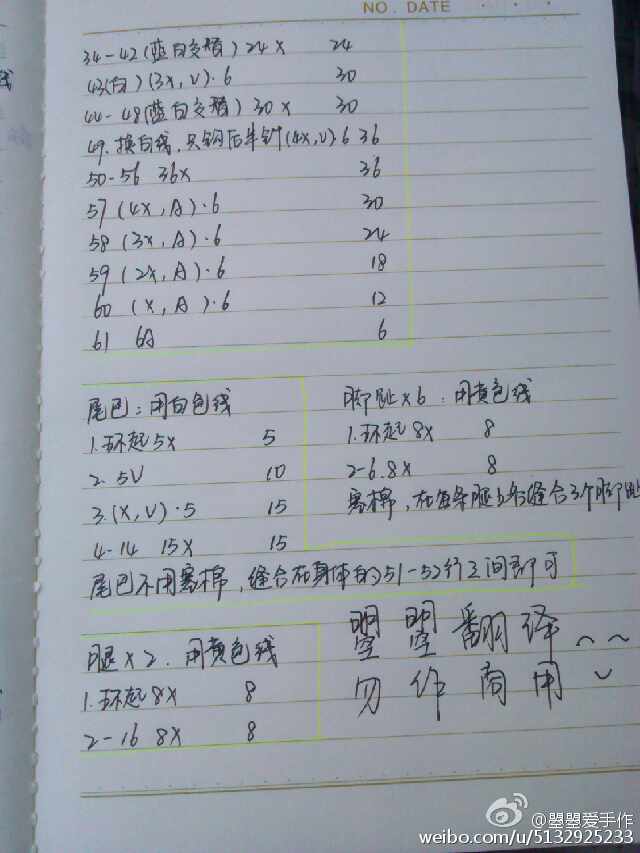 NO. DATE
34-42(蓝白交替)24X 24
43(白)(3X,V)·6 30
44-48(蓝白交替)30X 30
49.换白线,只钩后半针(4X,V)6 36
50-56 36X 36
57(4X,A)·6 30
58(3X,A)·6 24
59(2X,A)·6 18
60(X,A)·6 12
61 6A 6
尾巴:用白色线
1.环起5X 5
2. 5V 10
3.(X,V)·5 15
4-14 15X 15
尾巴不用塞棉,缝合在身体的51-52行之间即可
脚趾X6:用黄色线
1.环起8X 8
2-6.8X 8
塞棉,在每条腿上缝合3个脚趾
腿X2.用黄色线
1.环起8X 8
2-16 8X 8
曌曌翻译~~
勿作商用
@曌曌爱手作
weibo.com/u/5132925233